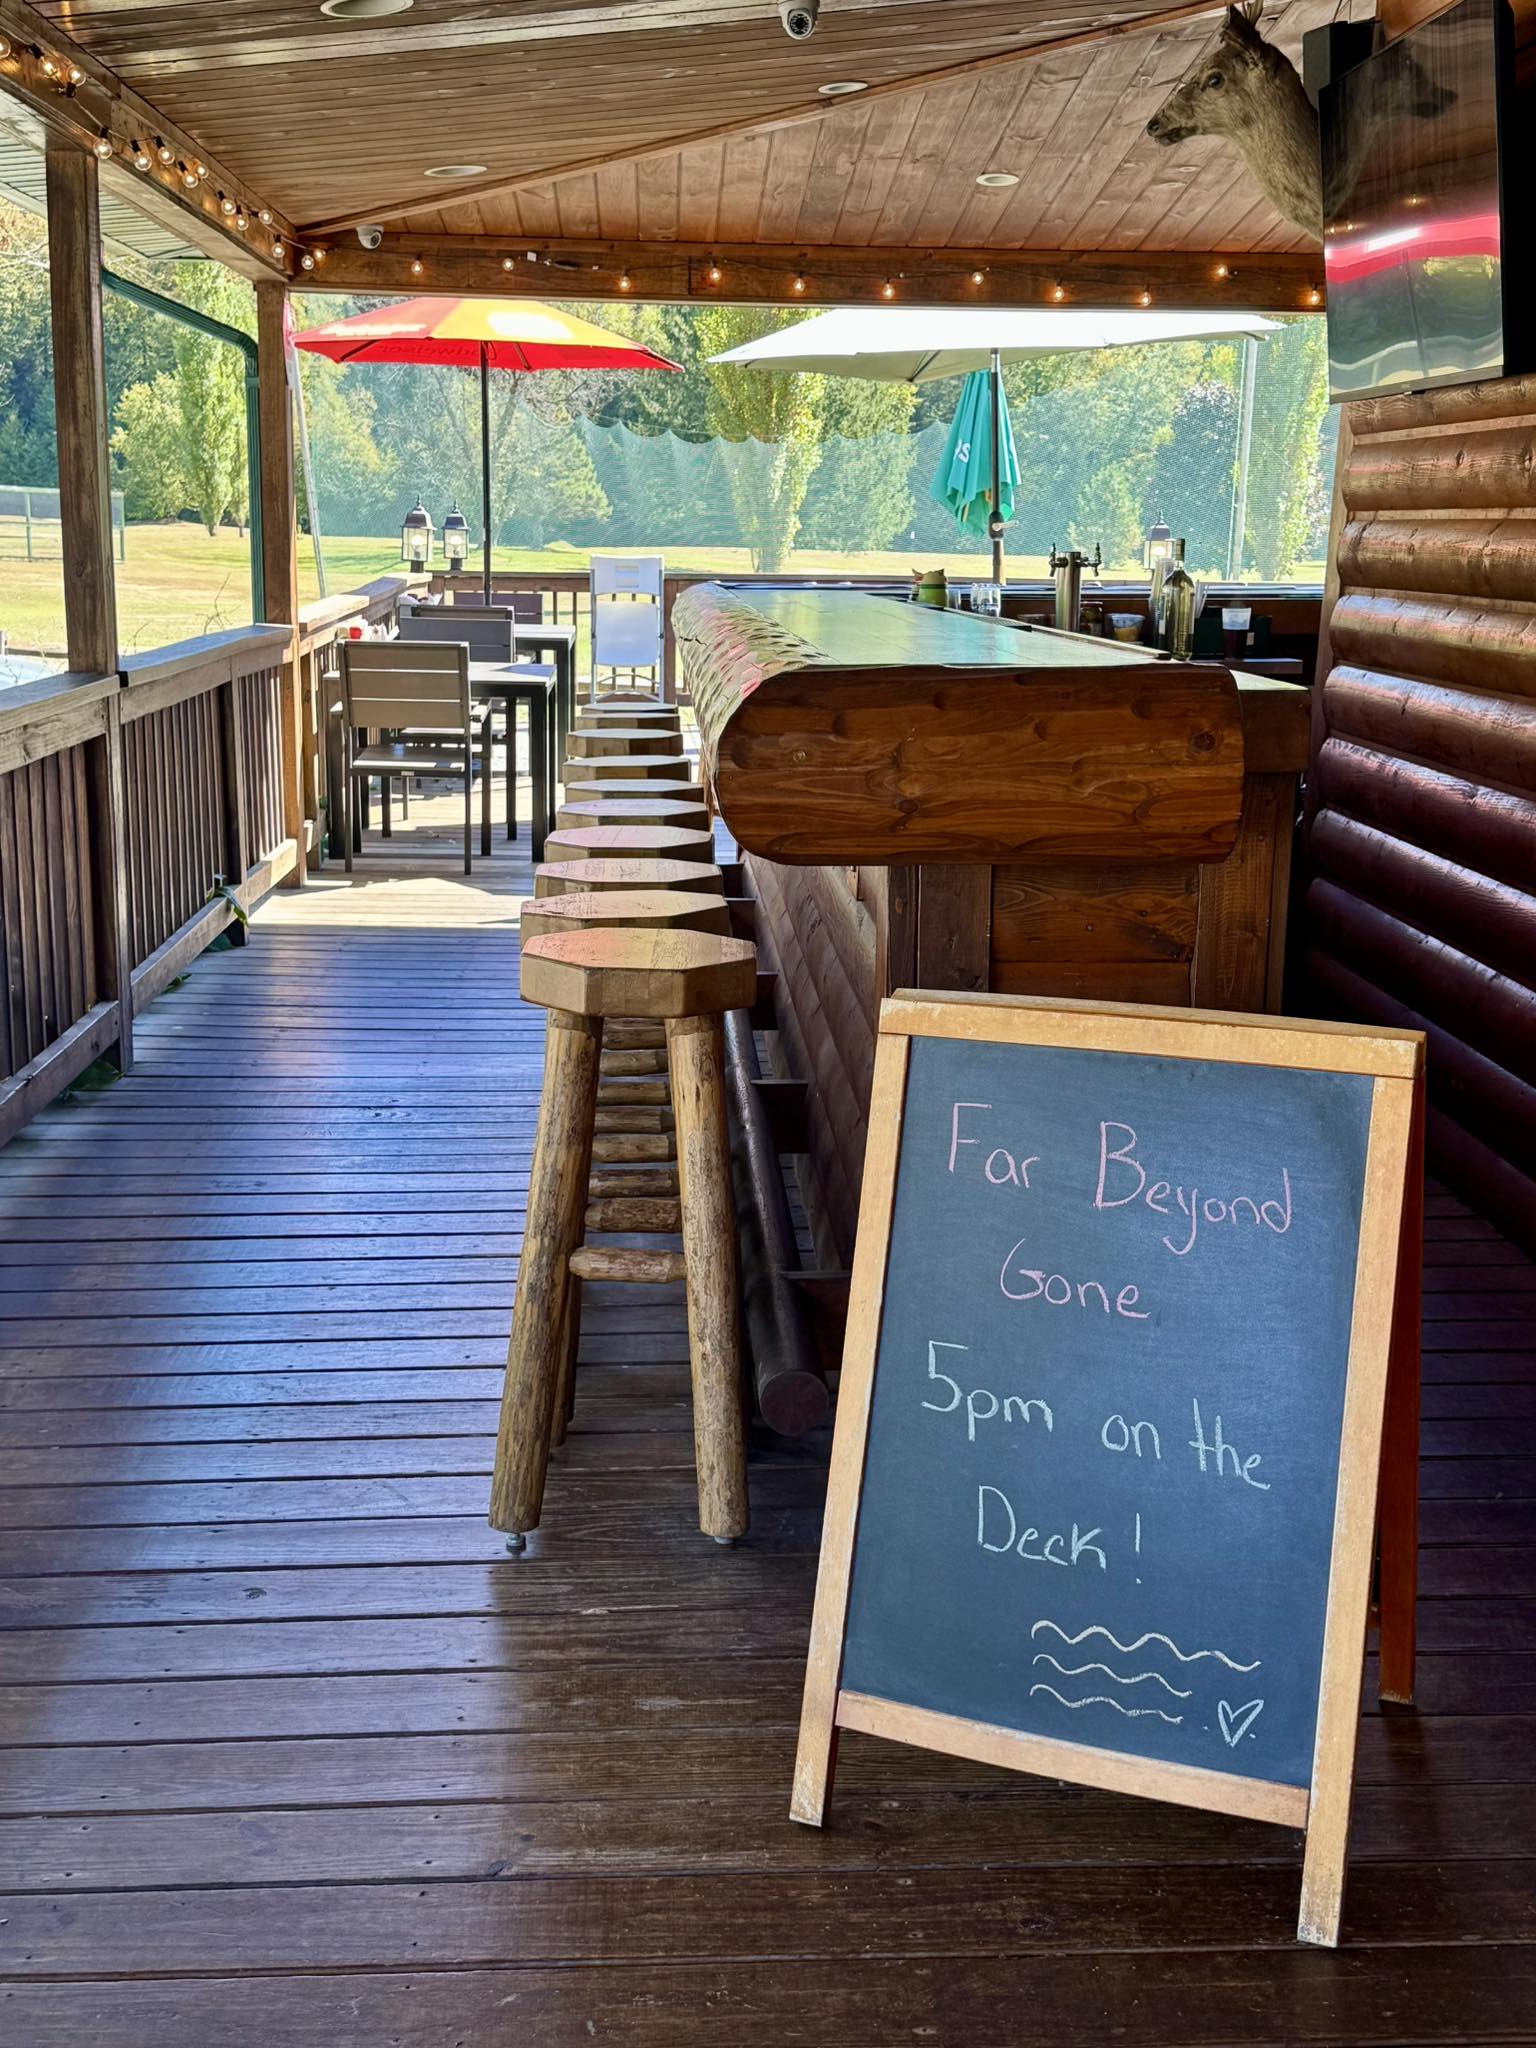 Far Beyond
Gone
5pm on the
Deck!